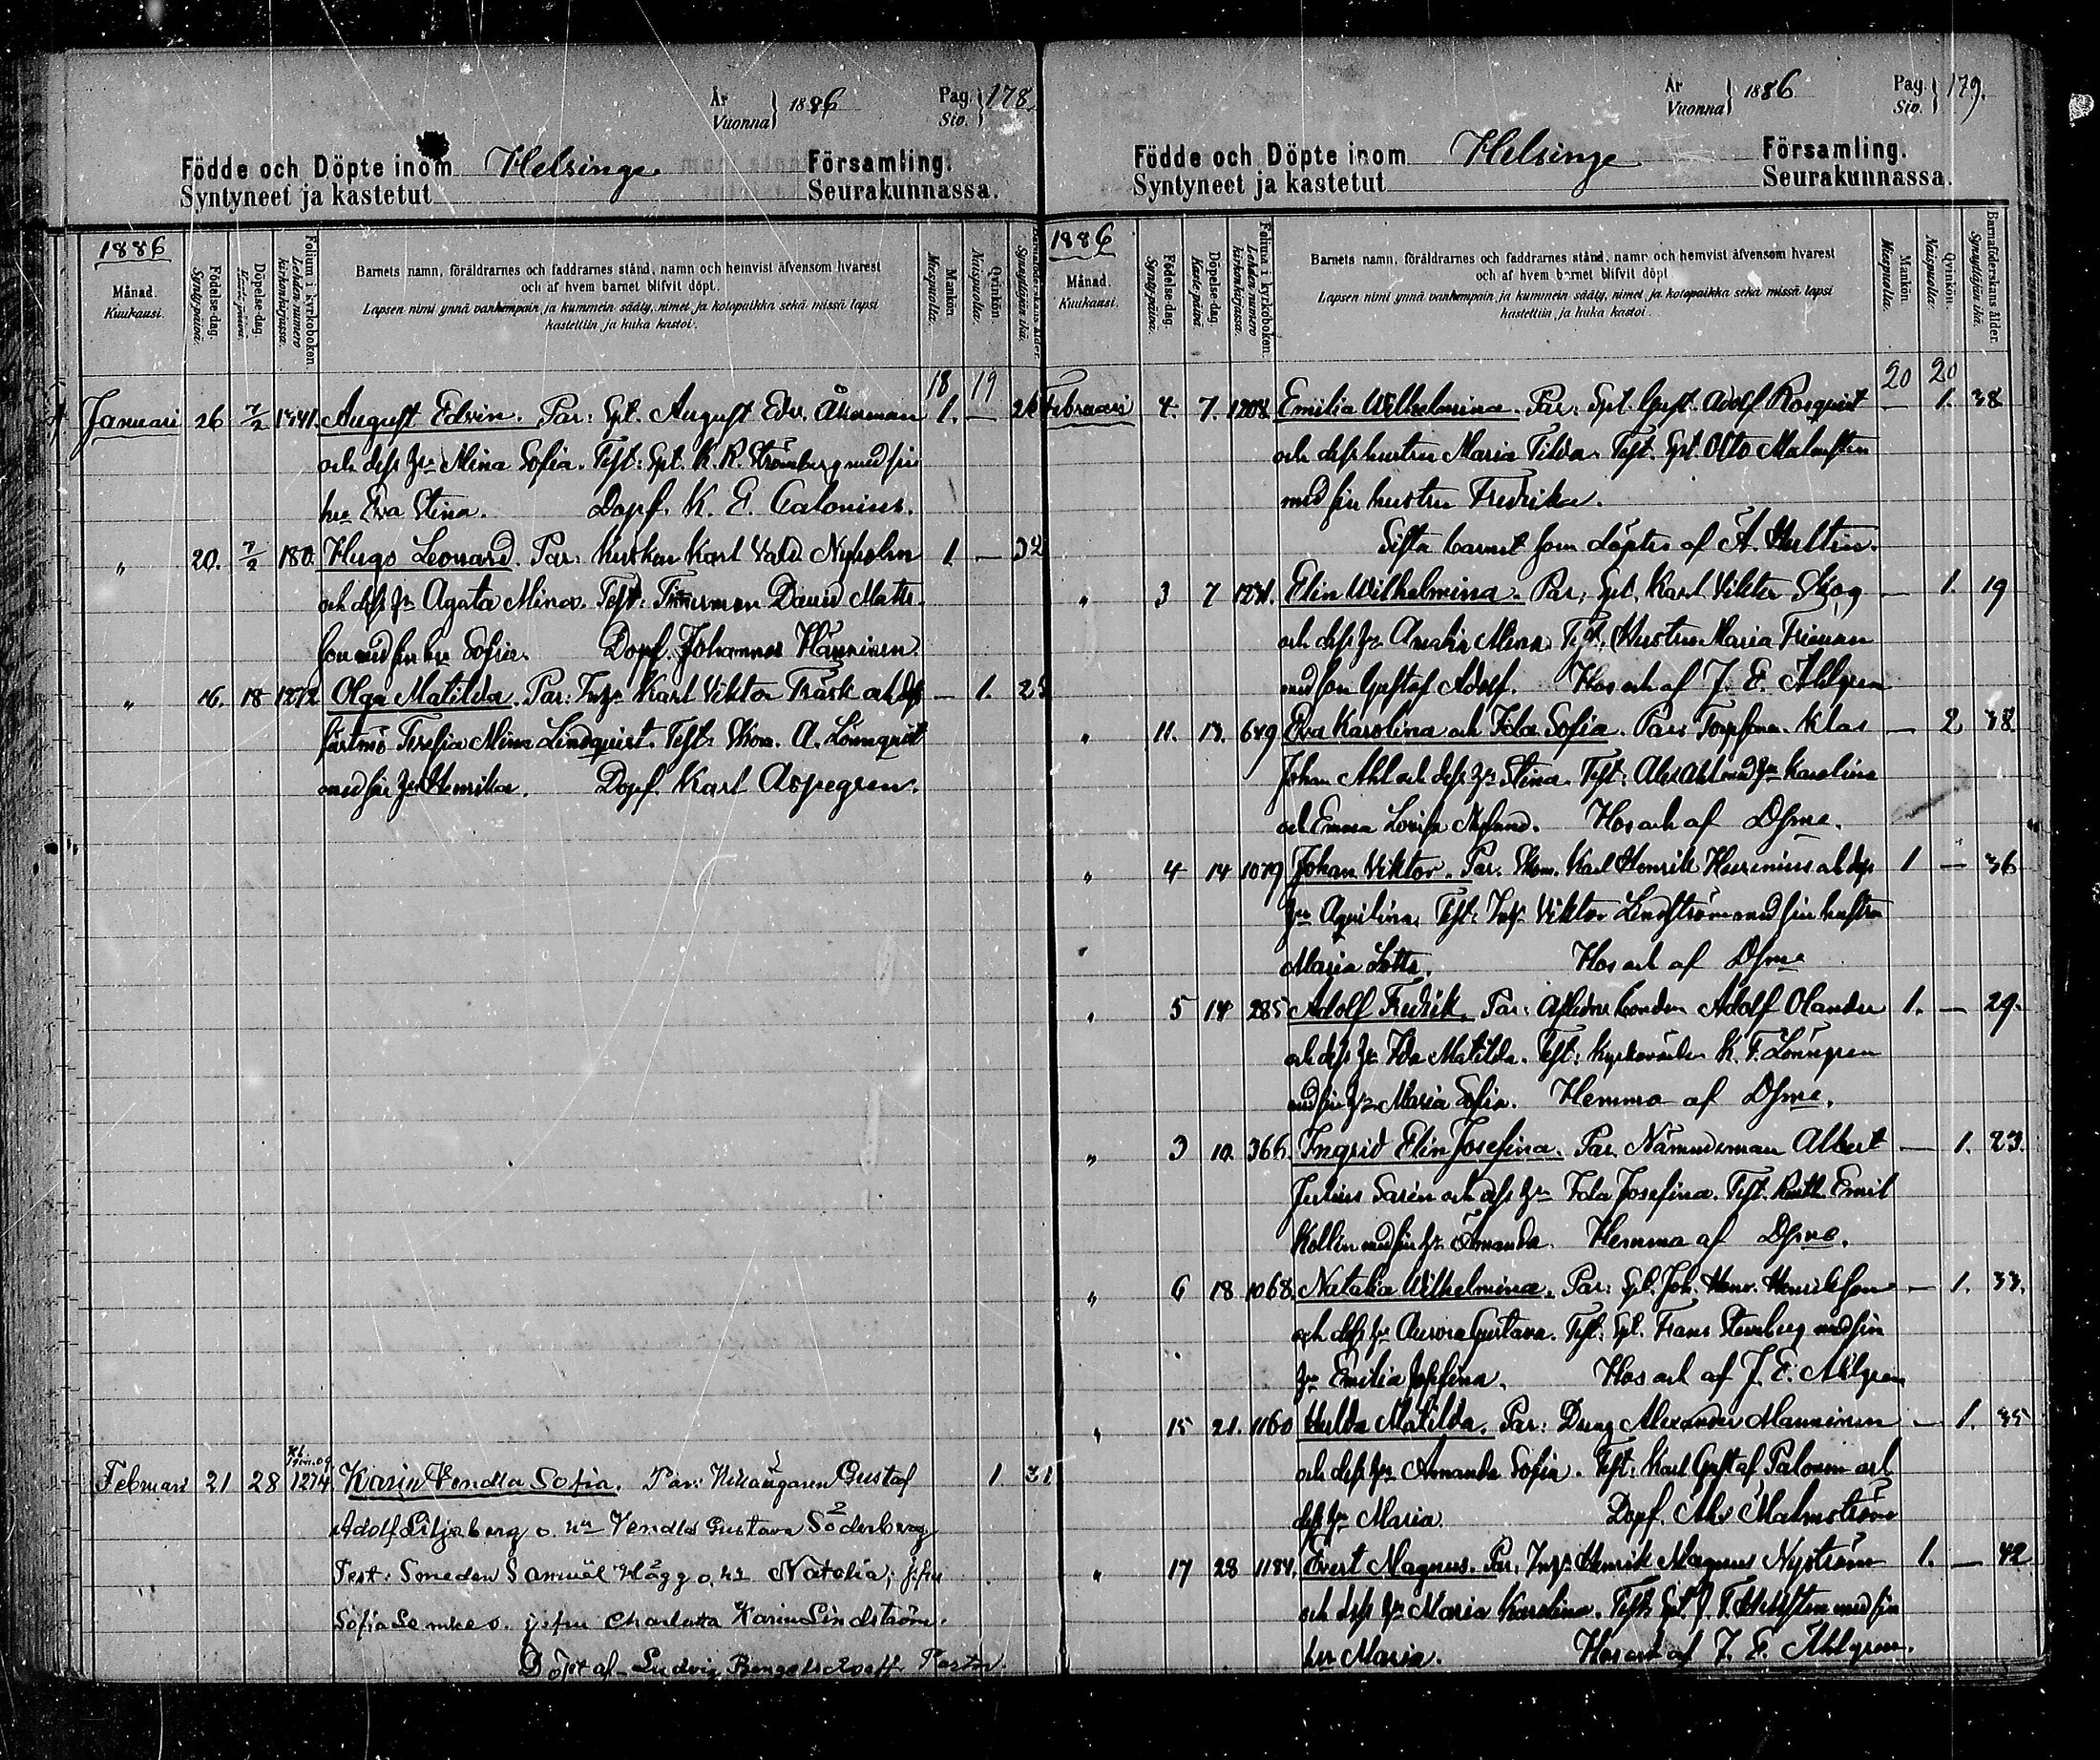 År Vuonna 1886 Pag. Siv. 178.
Födde och Döpte inom Helsinge. Församling.
Syntyneet ja kastetut Seurakunnassa.
1886
Månad. Kuukausi.
Födelse-dag. Syntypäivä.
Döpelse-dag. Kastepäivä.
Folium i kyrkoboken. Lehden numero kirkonkirjassa.
Barnets namn, föräldrarnes och faddrarnes stånd, namn och hemvist äfvensom hvarest
och af hvem barnet blifvit döpt.
Lapsen nimi ynnä vanhempain ja kummein sääty, nimet ja kotopaikka sekä missä lapsi
kastettiin ja kuka kastoi.
Mankön. Miespuolia.
Qvinkön. Naispuolia.
Barnaföderskans ålder. Synnyttäjän ikä.
18 19
Januari 26 7/2 1341. August Edvin. Par: Spt. August Edv. Åkerman 1. — 26
och dess hu Mina Sofia. Test: Spt. K. R. Strömberg med sin
hu Eva Stina. Dopf. K. E. Calonius.
" 20. 7/2 180. Hugo Leonard. Par: Kusken Karl Vald. Nyholm 1 — 32
och dess hu Agata Mina. Test: Timmerman David Matts-
son med sin hu Sofia. Dopf. Johannes Hänninen.
" 16. 18 1272 Olga Matilda. Par: Inhys Karl Viktor Träsk och dess — 1. 25
fästmö Teresia Mina Lindquist. Test: Skom. A. Lönnquist
med sin hu Henrika. Dopf. Karl Aspegren.
Februari 21 28 1274 Karin Vendla Sofia. Par: Gustaf 1. 31
Adolf Liljeberg o. hu Vendla Gustava Söderberg
Test: Smeden Samuel Hägg o. hu Natalia, jfru
Sofia Lemke o. jfru Charlotta Karin Lindström.
Döpt af Ludvig Bengelsdorff Pastor.
År Vuonna 1886 Pag. Siv. 179.
Födde och Döpte inom Helsinge Församling.
Syntyneet ja kastetut Seurakunnassa.
1886
Månad. Kuukausi.
Födelse-dag. Syntypäivä.
Döpelse-dag. Kastepäivä.
Folium i kyrkoboken. Lehden numero kirkonkirjassa.
Barnets namn, föräldrarnes och faddrarnes stånd, namn och hemvist äfvensom hvarest
och af hvem barnet blifvit döpt.
Lapsen nimi ynnä vanhempain ja kummein sääty, nimet ja kotopaikka sekä missä lapsi
kastettiin ja kuka kastoi.
Mankön. Miespuolia.
Qvinkön. Naispuolia.
Barnaföderskans ålder. Synnyttäjän ikä.
20 20
Februari 4. 7. 1208. Emilia Wilhelmina. Par: Spt. Gust. Adolf Rosquist — 1. 38
och dess hustru Maria Tilda. Test. Spt. Otto Malmsten
med sin hustru Fredrika.
Sista barnet som döptes af A. Hultin.
" 3 7 1231. Elin Wilhelmina. Par: Spt. Karl Viktor Skog — 1. 19
och dess hu Amalia Mina. Test. Hustru Maria Friman
med son Gustaf Adolf. Hos och af J. E. Ahlgren
" 11. 13. 649 Eva Karolina och Ida Sofia. Par: Klas — 2 38
Johan Ahl och dess hu Stina. Test: Alex Ahl med hu Karolina
och Emma Lovisa Nylund. Hos och af Dsme.
" 4 14 1079 Johan Viktor. Par. Skom. Karl Henrik Heurenius och dess 1 — 36
hu Aqvilina. Test: Inhys Viktor Lindström med sin hustru
Maria Lotta. Hos och af Dsme
" 5 14 285 Adolf Fredrik. Par: Aflidne bonden Adolf Olander 1. — 29.
och dess hu Ida Matilda. Test: Kyrkovärden K. F. Lönngren
med sin hu Maria Sofia. Hemma af Dsme.
" 3 10. 366. Ingrid Elin Josefina. Par. Nämndeman Albert — 1. 23.
Julius Sarén och dess hu Ida Josefina. Test. Emil
Kollin med sin hu Amanda. Hemma af Dsme.
" 6 18 1068. Natalia Wilhelmina. Par: Spt. Joh. Henr. Henriksson — 1. 33.
och dess hu Aurora Gustava. Test: Spt. Frans Stenberg med sin
hu Emilia Josefina. Hos och af J. E. Ahlgren
" 15 21. 1160 Hulda Matilda. Par: Dreng Alexander Manninen — 1. 35
och dess hu Amanda Sofia. Test: Karl Gustaf Palonen och
dess hu Maria. Dopf. Alex Malmström
" 17 28 1184. Evert Magnus. Par. Inhys Henrik Magnus Nyström 1. — 42
och dess hu Maria Karolina. Test: Spt. J. F. Hellsten med sin
hu Maria. Hos och af J. E. Ahlgren.